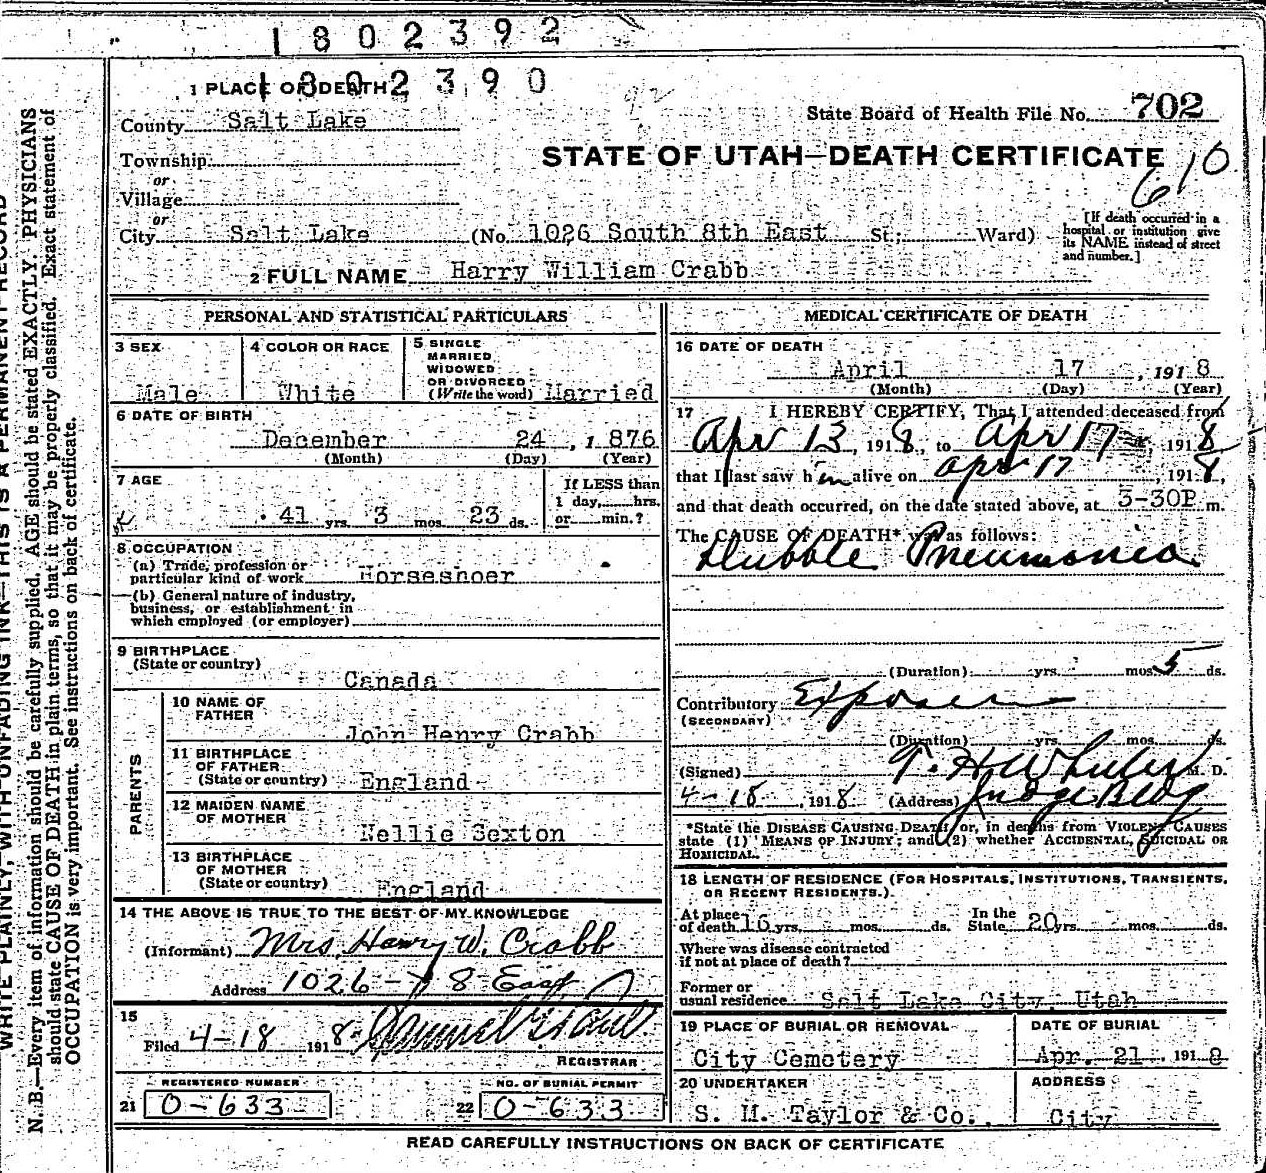 1802392
1802390
1 PLACE OF DEATH
State Board of Health File No. 702
County Salt Lake
STATE OF UTAH—DEATH CERTIFICATE
610
Township
or
Village
or
City Salt Lake (No. 1026 South 8th East St.; Ward)
[If death occurred in a hospital or institution give its NAME instead of street and number.]
2 FULL NAME Harry William Crabb
PERSONAL AND STATISTICAL PARTICULARS
3 SEX Male
4 COLOR OR RACE White
5 SINGLE
MARRIED
WIDOWED
OR DIVORCED
(Write the word) Married
6 DATE OF BIRTH
December 24, 1876
(Month) (Day) (Year)
7 AGE
41 yrs. 3 mos. 23 ds.
If LESS than
1 day, hrs.
or min.?
8 OCCUPATION
(a) Trade, profession or
particular kind of work Horseshoer
(b) General nature of industry,
business, or establishment in
which employed (or employer)
9 BIRTHPLACE
(State or country)
Canada
PARENTS
10 NAME OF
FATHER
John Henry Crabb
11 BIRTHPLACE
OF FATHER
(State or country) England
12 MAIDEN NAME
OF MOTHER
Nellie Sexton
13 BIRTHPLACE
OF MOTHER
(State or country) England
14 THE ABOVE IS TRUE TO THE BEST OF MY KNOWLEDGE
(Informant) Mrs. Harry W. Crabb
Address 1026 - 8 East
15
Filed 4-18 1918
REGISTRAR
REGISTERED NUMBER
21 0-633
NO. OF BURIAL PERMIT
22 0-633
MEDICAL CERTIFICATE OF DEATH
16 DATE OF DEATH
April 17, 1918
(Month) (Day) (Year)
17 I HEREBY CERTIFY, That I attended deceased from
Apr 13, 1918, to Apr 17, 1918
that I last saw him alive on Apr 17, 1918,
and that death occurred, on the date stated above, at 3-30P m.
The CAUSE OF DEATH* was as follows:
Dubble Pneumonia
(Duration) yrs. mos. 5 ds.
Contributory Exposure
(SECONDARY)
(Duration) yrs. mos. ds.
(Signed) T. H. Wheeler M. D.
4-18, 1918 (Address) Judge Bldg
*State the DISEASE CAUSING DEATH, or, in deaths from VIOLENT CAUSES
state (1) MEANS OF INJURY; and (2) whether ACCIDENTAL, SUICIDAL OR
HOMICIDAL.
18 LENGTH OF RESIDENCE (FOR HOSPITALS, INSTITUTIONS, TRANSIENTS,
OR RECENT RESIDENTS.)
At place
of death 16 yrs. mos. ds.
In the
State 20 yrs. mos. ds.
Where was disease contracted
if not at place of death?
Former or
usual residence Salt Lake City, Utah
19 PLACE OF BURIAL OR REMOVAL
City Cemetery
DATE OF BURIAL
Apr. 21, 1918
20 UNDERTAKER
S. M. Taylor & Co.
ADDRESS
City
READ CAREFULLY INSTRUCTIONS ON BACK OF CERTIFICATE
WRITE PLAINLY, WITH UNFADING INK—THIS IS A PERMANENT RECORD
N. B.—Every item of information should be carefully supplied. AGE should be stated EXACTLY. PHYSICIANS
should state CAUSE OF DEATH in plain terms, so that it may be properly classified. Exact statement of
OCCUPATION is very important. See instructions on back of certificate.